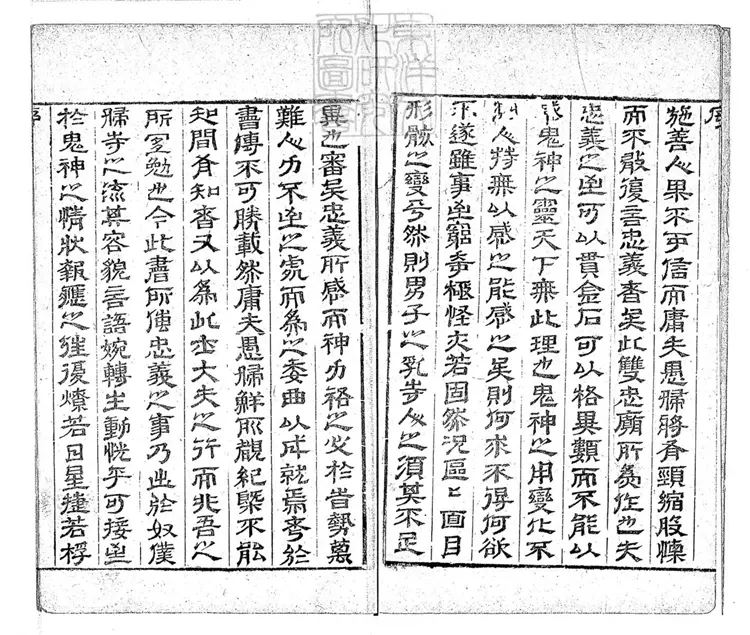 序
施善人果不可信而庸夫愚婦將脊頸縮股慄
而不敢復言忠義者矣此雙忠廟所爲作也夫
忠義之至可以貫金石可以格異類而不能以
鬼神之靈天下無此理也鬼神之用變化不
測人特無以感之能感之矣則何求不得何欲
不遂雖事至窮奇極怪亦若固然况區〻面目
形骸之變乎然則男子之乳寺人之須莫不足
異也審矣忠義所感而神力祐之必於皆勢萬
難人力不至之處而爲之委曲以成就焉考於
書傳不可勝載然庸夫愚婦鮮所觀紀槩不能
知間有知者又以爲此士大夫之行而非吾之
所宜勉也今此書所傳忠義之事乃出於奴僕
婦寺之流其容貌言語婉轉生動恍乎可接至
於鬼神之情狀報應之往復燦若日星捷若桴
序